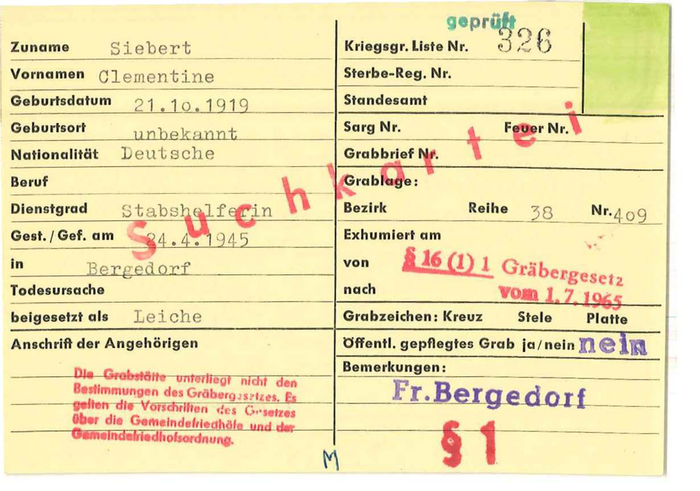 Zuname Siebert
Vornamen Clementine
Geburtsdatum 21.10.1919
Geburtsort unbekannt
Nationalität Deutsche
Beruf
Dienstgrad Stabshelferin
Gest./Gef. am 24.4.1945
in Bergedorf
Todesursache
beigesetzt als Leiche
Anschrift der Angehörigen
Die Grabstätte unterliegt nicht den
Bestimmungen des Gräbergesetzes. Es
gelten die Vorschriften des Gesetzes
über die Gemeindefriedhöfe und der
Gemeindefriedhofsordnung.
M
Suchkartei
geprüft
Kriegsgr. Liste Nr. 326
Sterbe-Reg. Nr.
Standesamt
Sarg Nr. Feuer Nr.
Grabbrief Nr.
Grablage:
Bezirk Reihe 38 Nr. 409
Exhumiert am
von § 16 (1) 1 Gräbergesetz
nach vom 1.7.1965
Grabzeichen: Kreuz Stele Platte
Öffentl. gepflegtes Grab ja/nein nein
Bemerkungen:
Fr.Bergedorf
§ 1